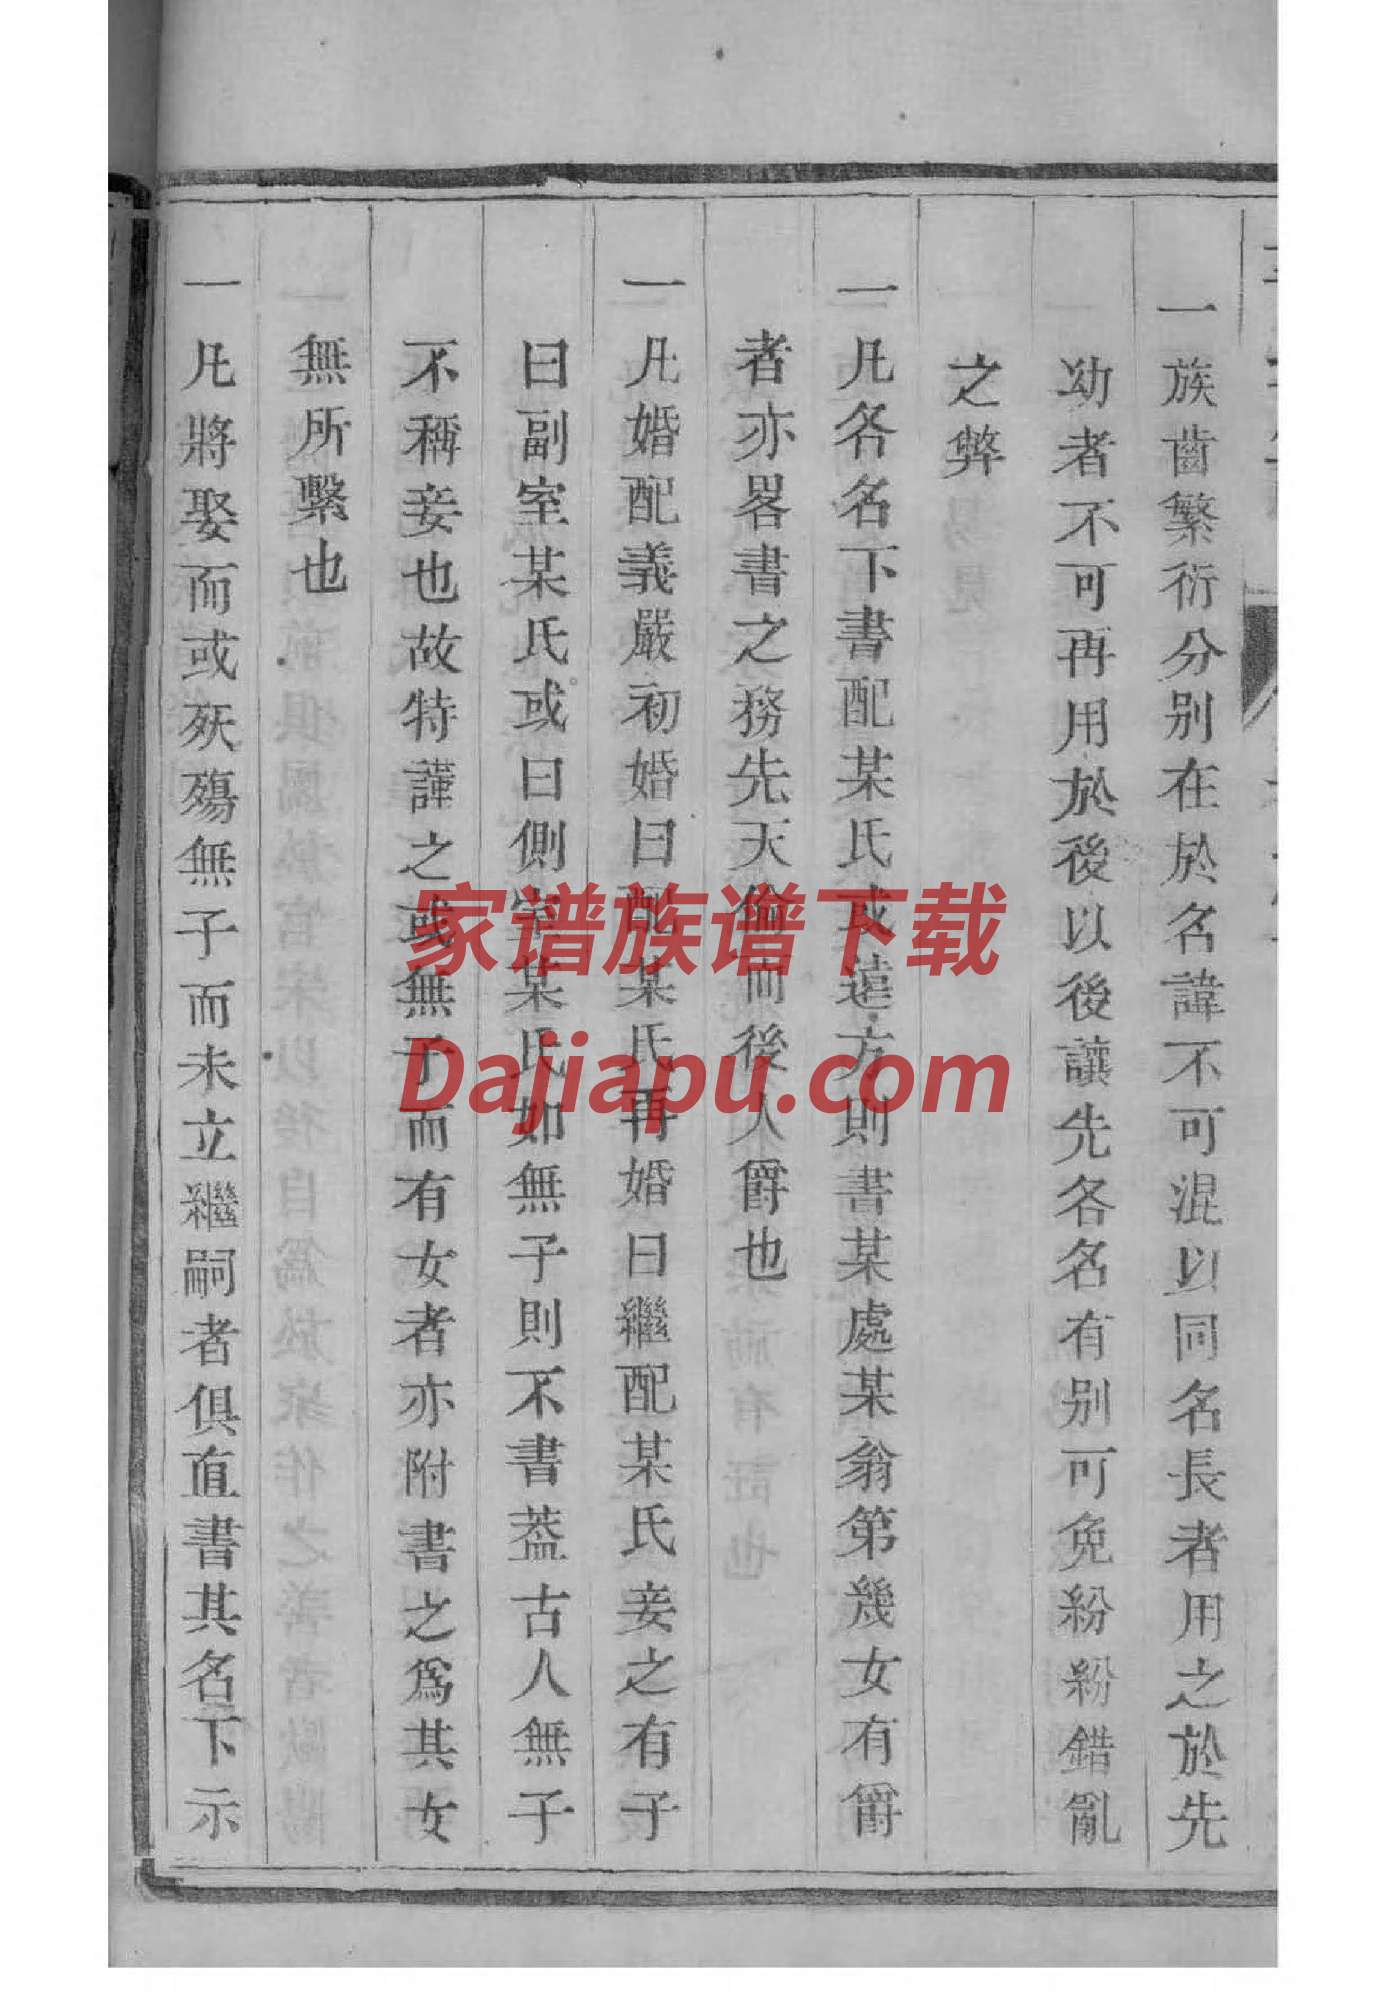 一族齒繁衍分別在於名諱不可混以同名長者用之於先
幼者不可再用於後以後讓先各名有別可免紛紛錯亂
之弊
一凡各名下書配某氏或遠方則書某處某翁第幾女有爵
者亦畧書之務先天倫而後人爵也
一凡婚配義嚴初婚曰配某氏再婚曰繼配某氏妾之有子
曰副室某氏或曰側室某氏如無子則不書葢古人無子
不稱妾也故特謹之或無子而有女者亦附書之爲其女
無所繫也
一凡將娶而或殀殤無子而未立繼嗣者俱直書其名下示
家谱族谱下载
Dajiapu.com